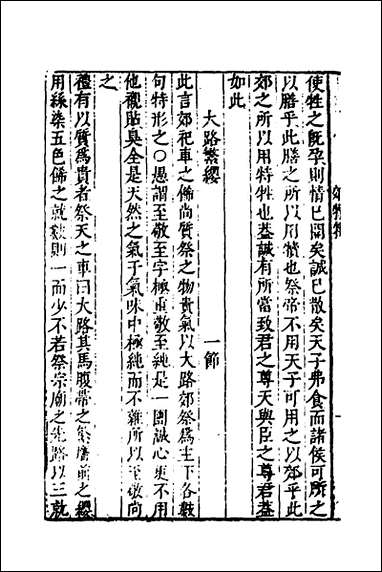 使牲之既孕則情已闢矣誠已散矣天子弗食而諸侯可所之
以膳乎此膳之所以用犢也祭帝不用天子可用之以郊乎此
郊之所以用特牲也蓋誠有所當致君之尊天與臣之尊君蓋
如此
大路繁纓 一節
此言郊祀車之備尚質祭之物貴氣以大路郊祭為主下各數
句特形之○愚謂至敬至字極重敬至純是一團誠心更不用
他襯貼臭全是天然之氣于氣味中極純而不雜所以至敬向
之
禮有以質為貴者祭天之車曰大路其馬腹帶之繁膺前之纓
用絲染五色備之就數則一而少不若祭宗廟之先路以三就